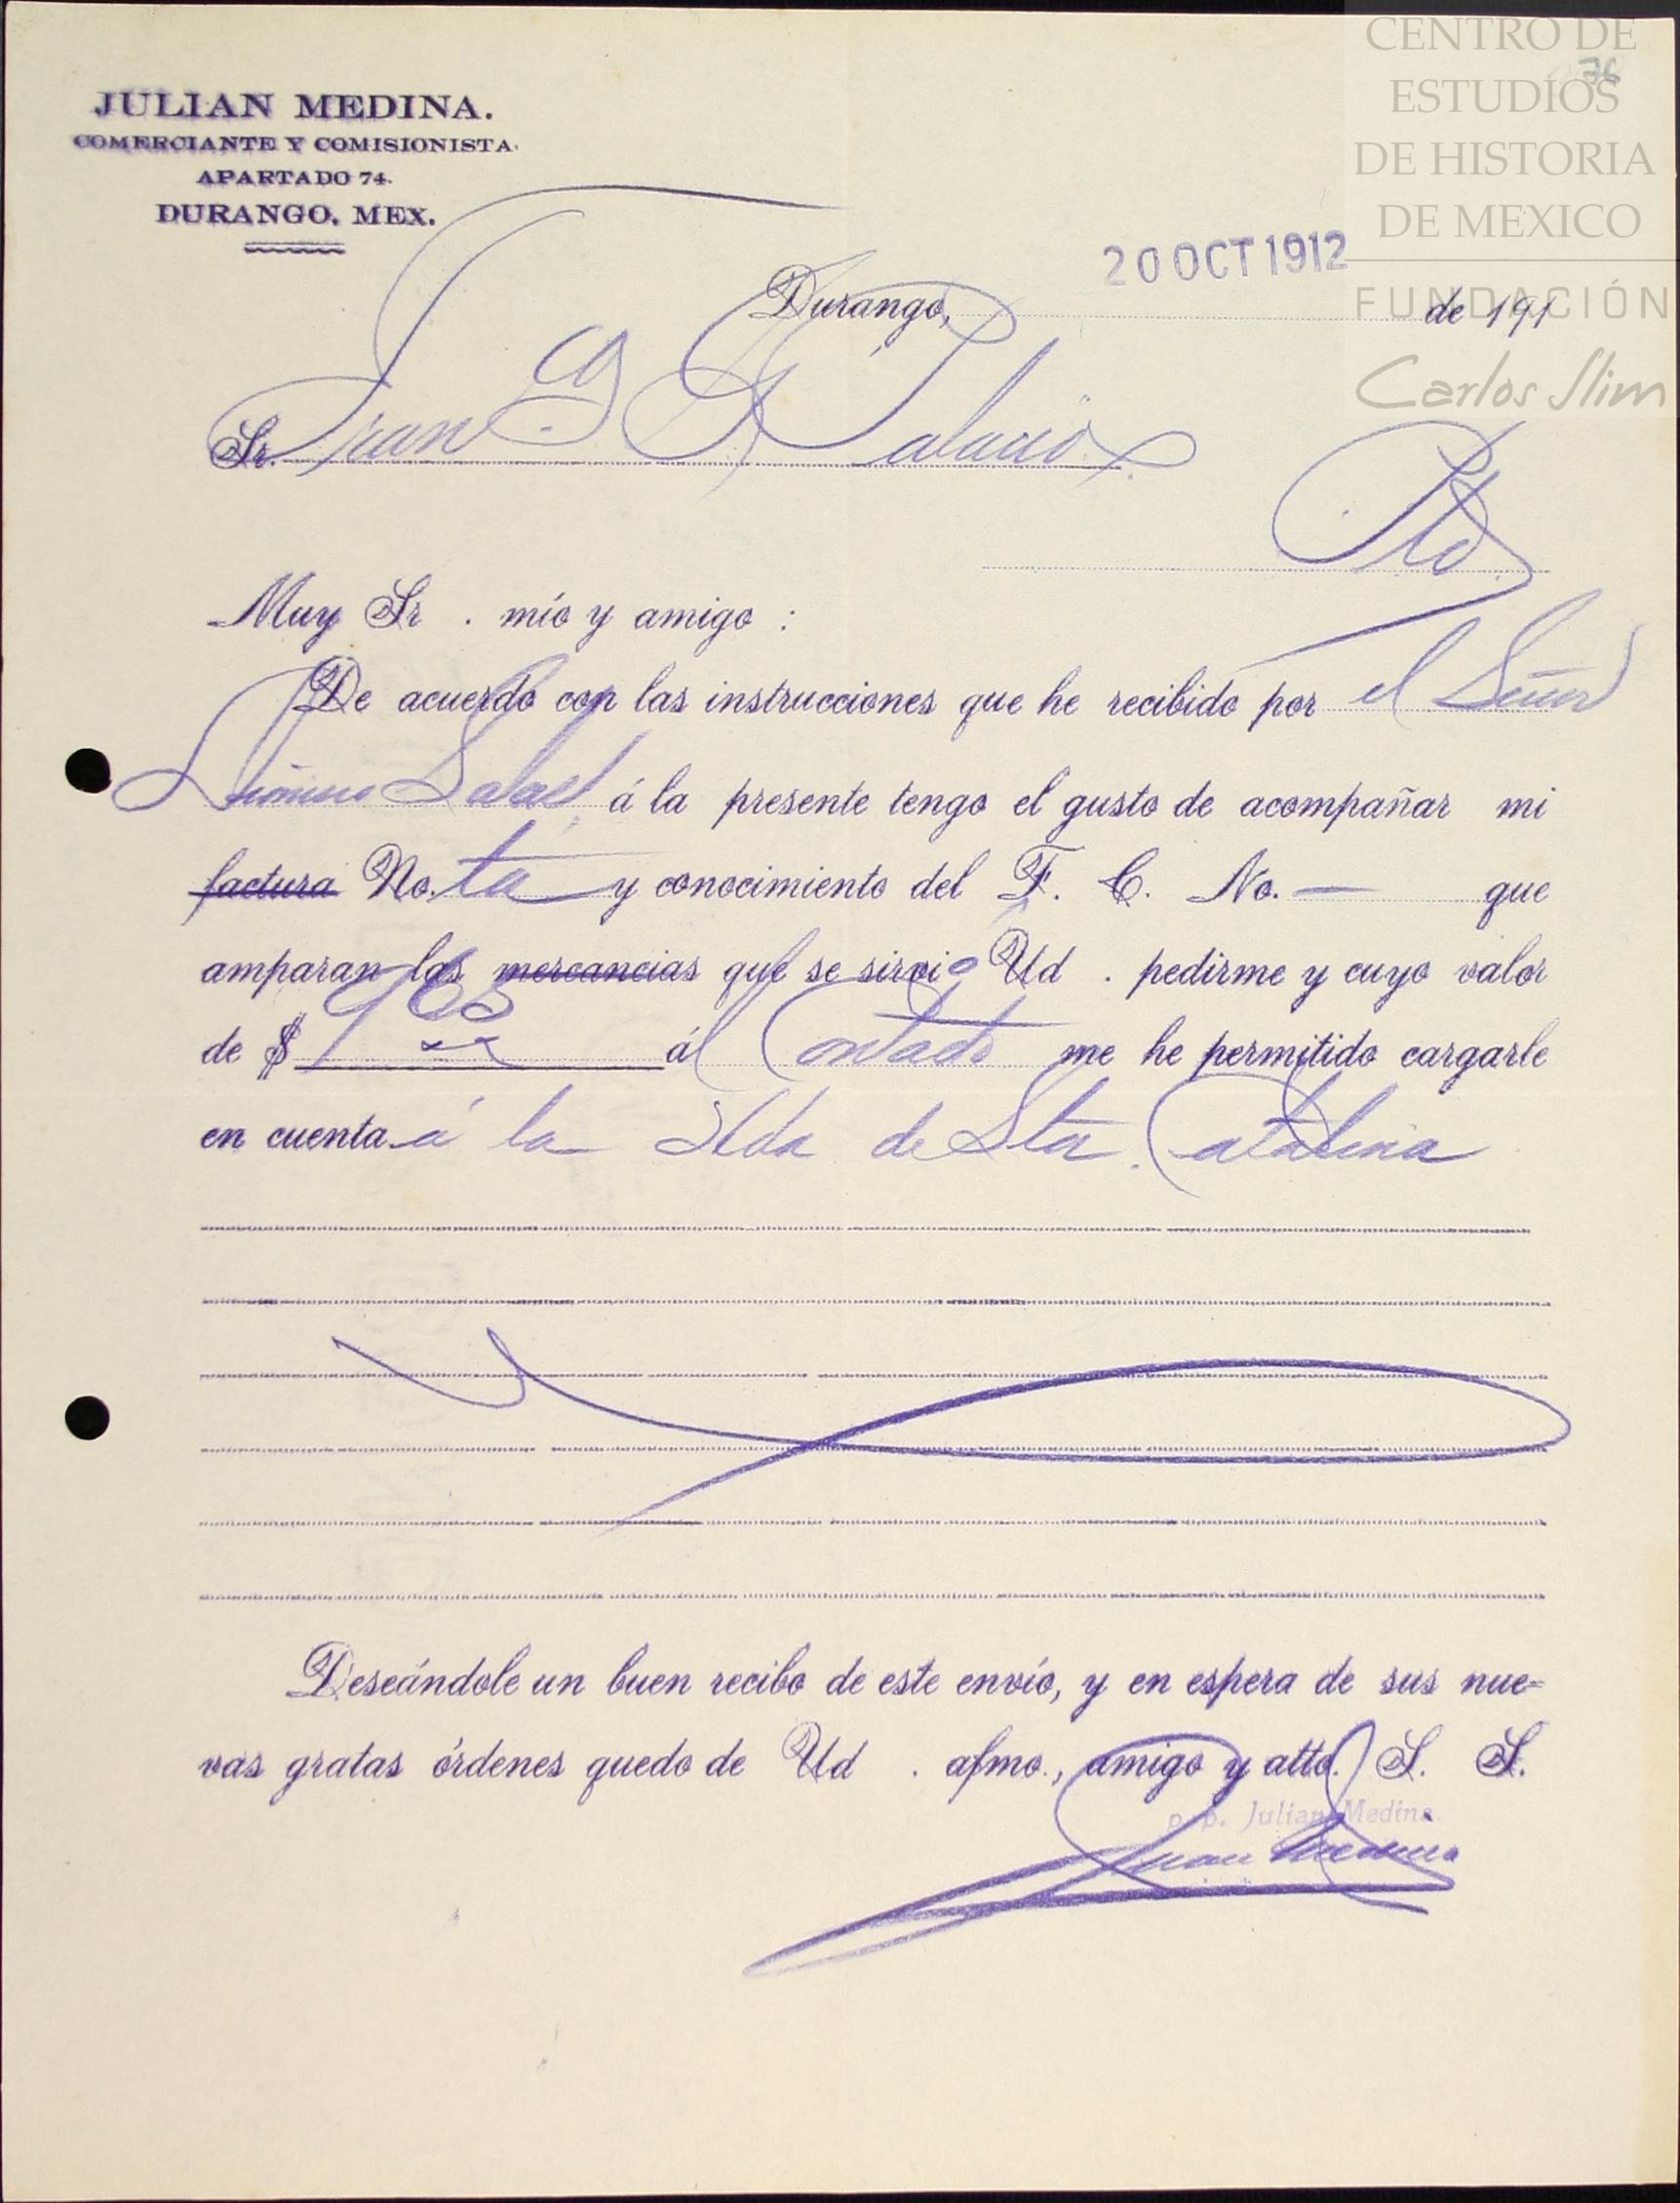 CENTRO DE
ESTUDIOS
DE HISTORIA
DE MEXICO
FUNDACIÓN
Carlos Slim
JULIAN MEDINA.
COMERCIANTE Y COMISIONISTA.
APARTADO 74.
DURANGO, MEX.
20 OCT 1912
Durango, de 191
Sr. Fran co G Palacio
Pte
Muy Sr . mío y amigo :
De acuerdo con las instrucciones que he recibido por el Señor
Salas á la presente tengo el gusto de acompañar mi
factura No. ta y conocimiento del F. C. No. — que
amparan las mercancias que se sirvio Ud . pedirme y cuyo valor
de $ ál Contado me he permitido cargarle
en cuenta á la Hda de Sta. Catalina
Deseándole un buen recibo de este envío, y en espera de sus nue-
vas gratas órdenes quedo de Ud . afmo., amigo y atto. S. S.
p. p. Julian Medina.
Juan Medina